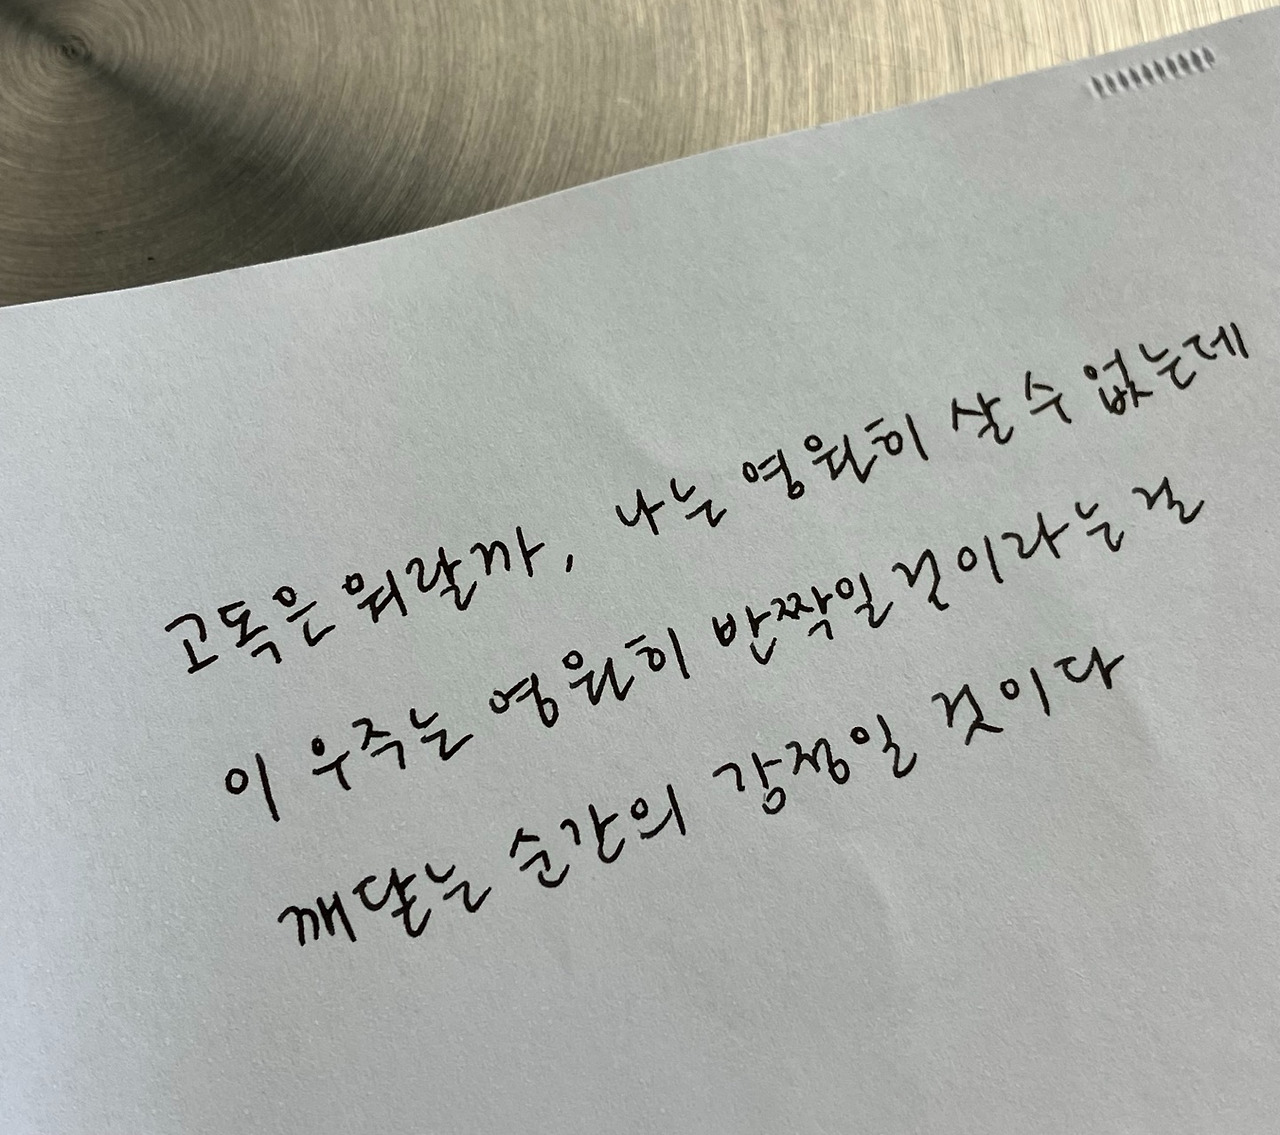 고독은 뭐랄까, 나는 영원히 살 수 없는데
이 우주는 영원히 반짝일 것이라는 걸
깨닫는 순간의 감정일 것이다